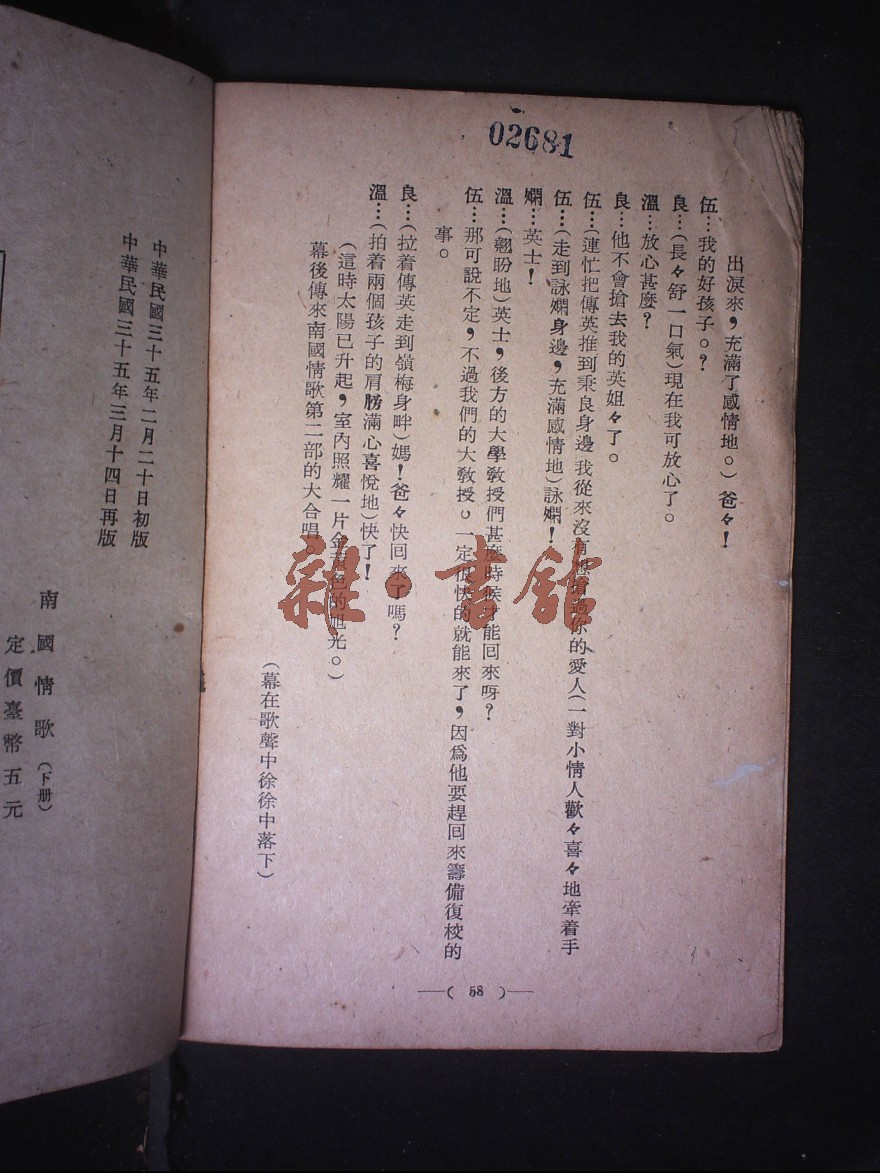 02681
出淚來，充滿了感情地。）爸々！
伍…我的好孩子。？
良…（長々舒一口氣）現在我可放心了。
溫…放心甚麼？
良…他不會搶去我的英姐々了。
伍…（連忙把傳英推到秉良身邊 我從來沒有想搶過你的愛人（一對小情人歡々喜々地牽着手
伍…（走到詠嫻身邊，充滿感情地）詠嫻！
嫻…英士！
溫…（翹盼地）英士，後方的大學教授們甚麼時候才能回來呀？
伍…那可說不定，不過我們的大教授。一定很快的就能來了，因爲他要趕回來籌備復校的
事。
良…（拉着傳英走到嶺梅身畔）媽！爸々快回來了嗎？
溫…（拍着兩個孩子的肩膀滿心喜悅地）快了！
（這時太陽已升起，室內照耀一片金黃色的旭光。）
幕後傳來南國情歌第二部的大合唱。
（幕在歌聲中徐徐中落下）
—（ 58 ）—
雜·書館
中華民國三十五年二月二十日初版
中華民國三十五年三月十四日再版
南國情歌（下册）
定價臺幣五元